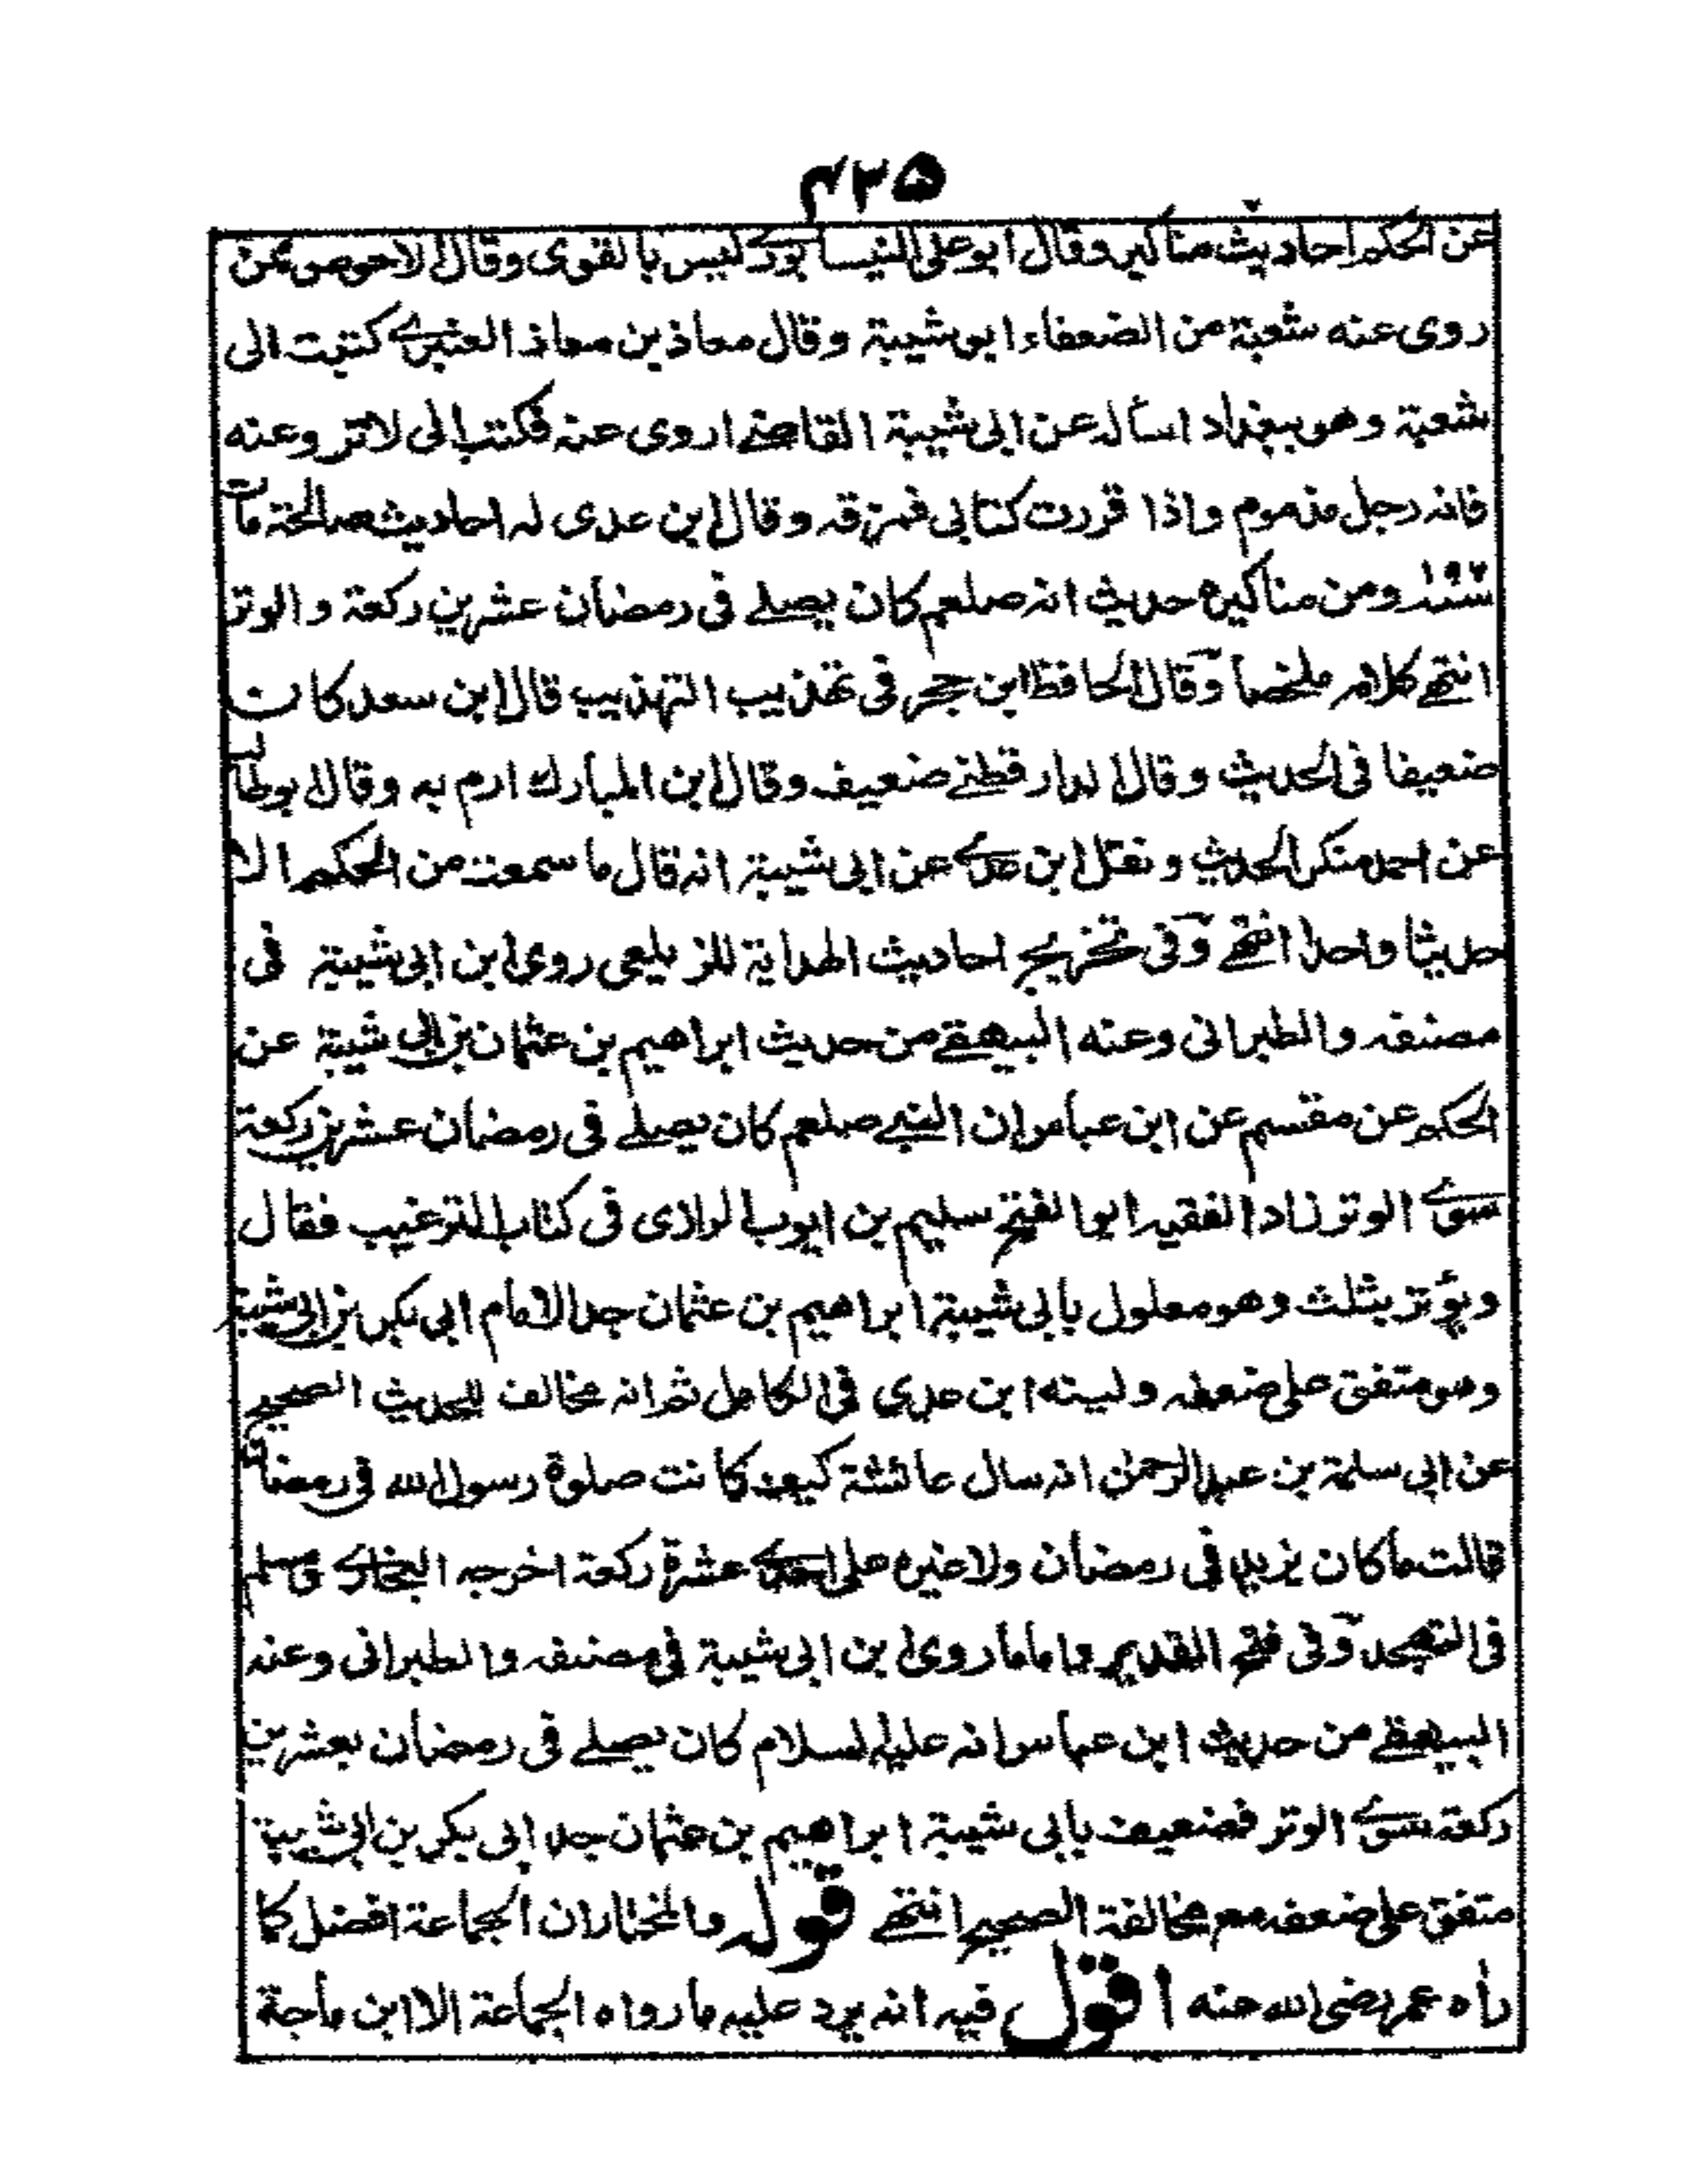 ۴۲۵
عن الحكم احاديث مناكير وقال ابو علي النيسابوري ليس بالقوى وقال الاحوص عمن
روى عنه شعبة من الضعفاء ابو شيبة وقال معاذ بن معاذ العنبري كتبت الى
شعبة وهو ببغداد اسأله عن ابى شيبة القاضے اروى عنه فكتب الى لا ترو عنه
فانه رجل مذموم واذا قررت كتابى فمزقه وقال ابن عدى له احاديث صالحة مات
ومن مناكيره حديث انه صلعم كان يصلے فى رمضان عشرين ركعة والوتر
انتهے كلامه ملخصا وقال الحافظ ابن حجر فى تهذيب التهذيب قال ابن سعد كان
ضعيفا فى الحديث وقال الدارقطنے ضعيف وقال ابن المبارك ارم به وقال ابو طالب
عن احمد منكر الحديث ونقل ابن عدے عن ابى شيبة انه قال ما سمعت من الحكم الا
حديثا واحدا انتهے وفى تخريج احاديث الهداية للزيلعى روى ابن ابى شيبة فى
مصنفه والطبرانى وعنه البيهقے من حديث ابراهيم بن عثمان بن ابى شيبة عن
الحكم عن مقسم عن ابن عباس ان النبے صلعم كان يصلے فى رمضان عشرين ركعة
سوے الوتر زاد الفقيه ابو الفتح سليم بن ايوب الرازى فى كتاب الترغيب فقال
ويوتر بثلث وهو معلول بابى شيبة ابراهيم بن عثمان جد الامام ابى بكر بن ابى شيبة
وهو متفق على ضعفه ولينه ابن عدى فى الكامل ثم انه مخالف للحديث الصحيح
عن ابى سلمة بن عبد الرحمن انه سال عائشة كيف كانت صلوة رسول الله فى رمضان
قالت ما كان يزيد فى رمضان ولا غيره على احدے عشرة ركعة اخرجه البخارے ومسلم
فى التهجد وفى فتح القدير واما ما روى ابن ابى شيبة فى مصنفه والطبرانى وعنه
البيهقے من حديث ابن عباس انه عليه السلام كان يصلے فى رمضان بعشرين
ركعة سوے الوتر فضعيف بابى شيبة ابراهيم بن عثمان جد ابى بكر بن ابى شيبة
متفق على ضعفه مع مخالفة الصحيح انتهے قوله والمختار ان الجماعة افضل كما
رأه عمر رضى الله عنه اقول فيه انه يرد عليه ما رواه الجماعة الا ابن ماجة